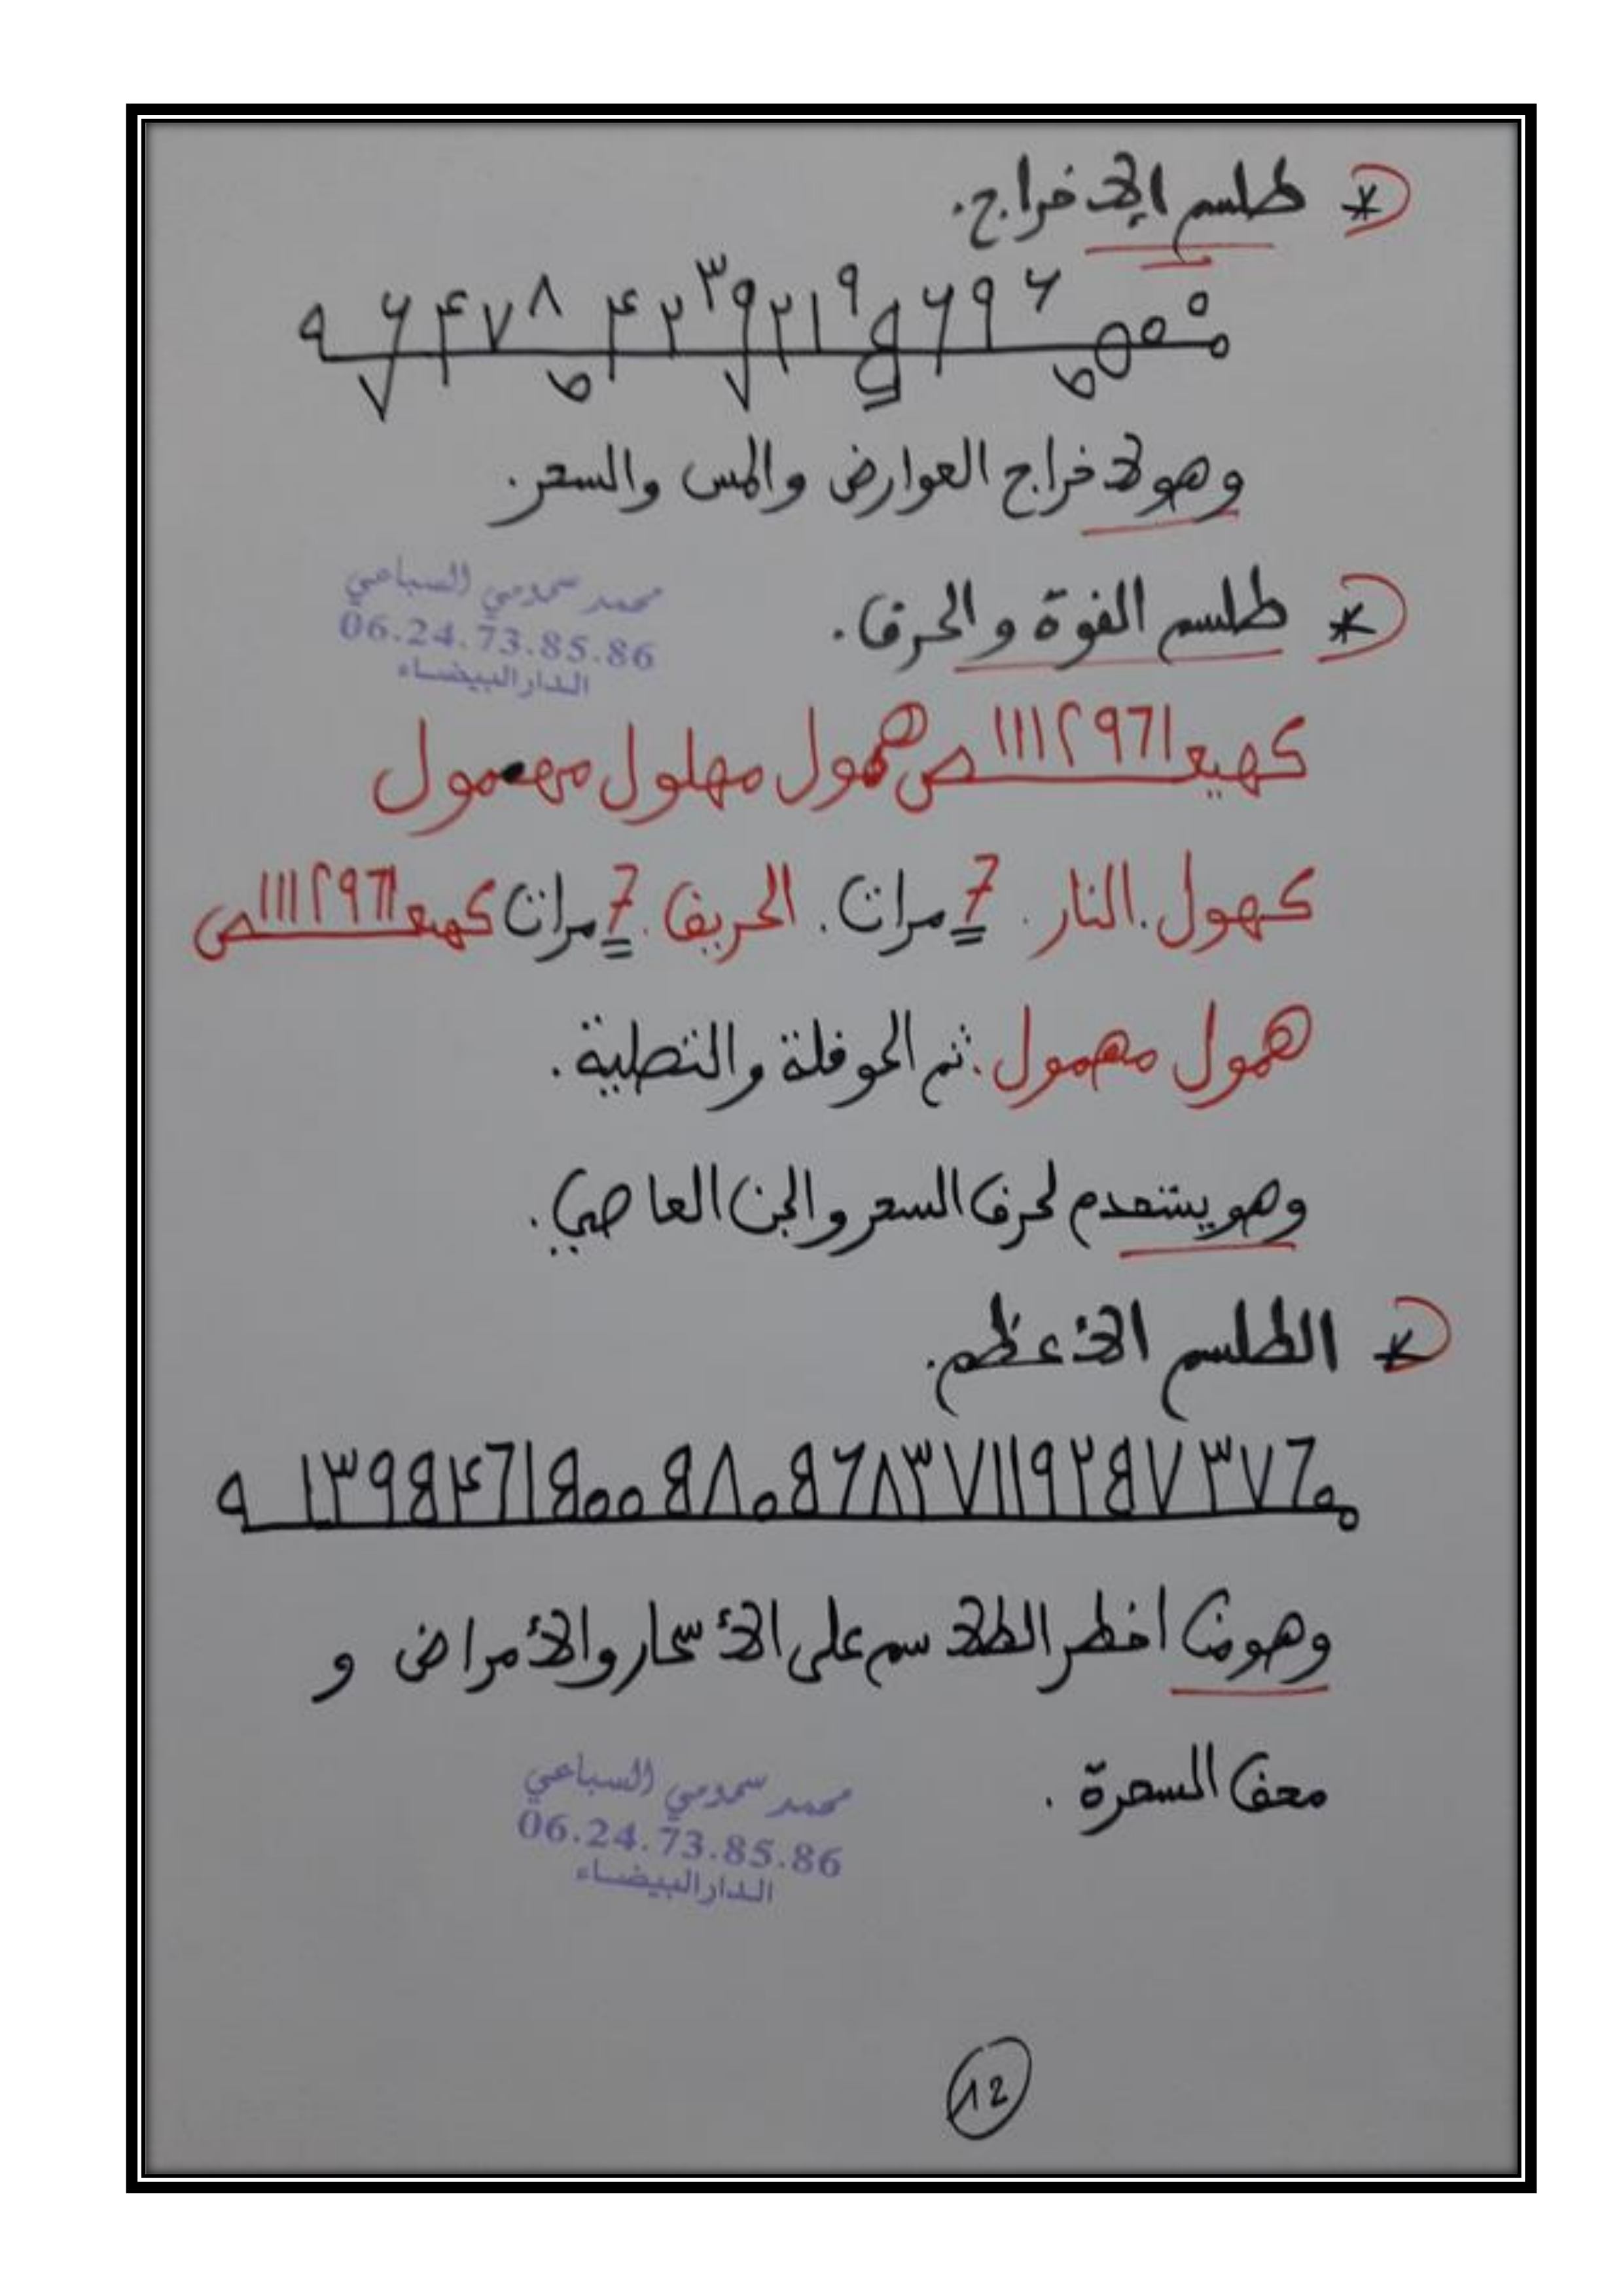 * طلسم الإخراج.
وهو لاخراج العوارض والمس والسحر.
محمد سحومي السباعي
06.24.73.85.86
الدار البيضاء
* طلسم القوة والحرق.
كهيعـ ١١١٢٩٦١ ـص همول مهلول مهمول
كهول. النار. 7 مرات. الحريق. 7 مرات كهيعـ ١١١٢٩٦١ ـص
همول مهمول. ثم الحوقلة والتصلية.
وهو يستخدم لحرق السحر والجن العاصي.
* الطلسم الأعظم.
وهو من اخطر الطلاسم على الأسحار والأمراض و
محق السحرة.
محمد سحومي السباعي
06.24.73.85.86
الدار البيضاء
12